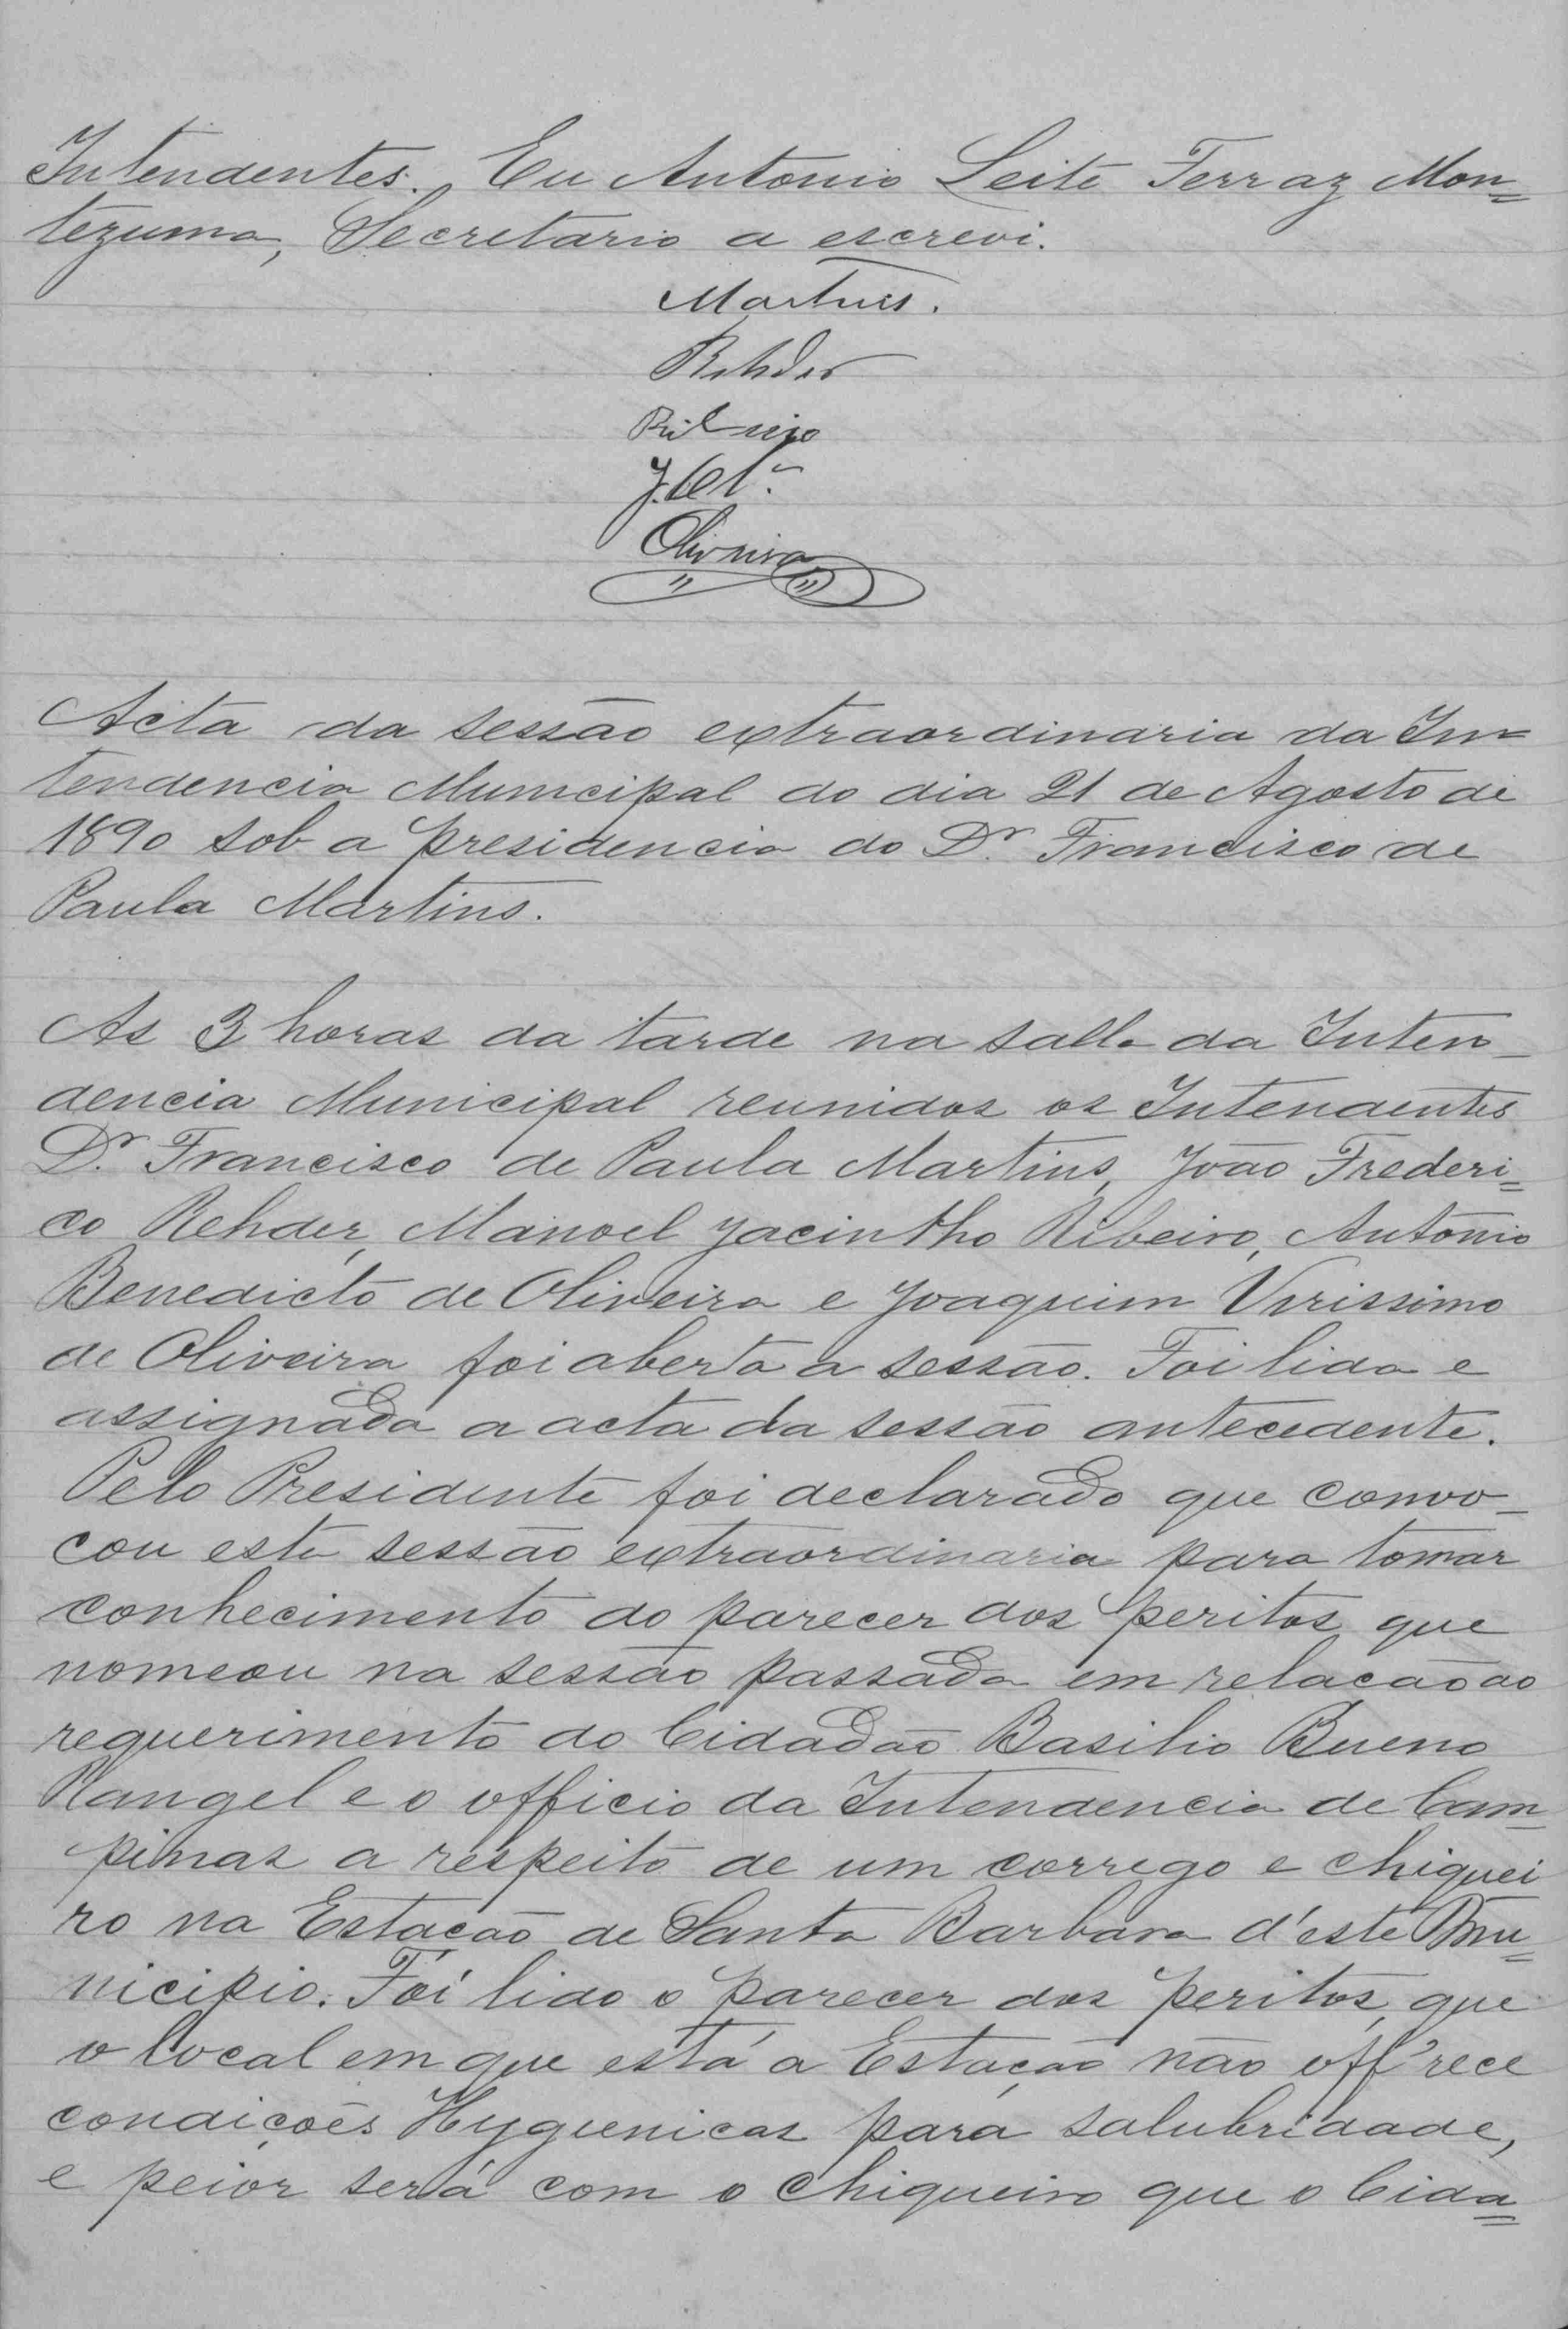 Intendentes. Eu Antonio Leite Ferraz Mon=
tezuma, Secretario a escrevi.
Martins.
Rehder
Ribeiro
Oliveira
Acta da sessão extraordinaria da In=
tendencia Municipal do dia 21 de Agosto de
1890 sob a presidencia do Dr. Francisco de
Paula Martins.
As 3 horas da tarde na salla da Inten_
dencia Municipal reunidos os Intendentes
Dr. Francisco de Paula Martins, João Frederi=
co Rehder, Manoel Jacintho Ribeiro, Antonio
Benedicto de Oliveira e Joaquim Virissimo
de Oliveira foi aberta a sessão. Foi lida e
assignada a acta da sessão antecedente.
Pelo Presidente foi declarado que convo_
cou esta sessão extraordinaria para tomar
conhecimento do parecer dos peritos que
nomeou na sessão passada em relacão ao
requerimento do Cidadão Basilio Bueno
Rangel e o officio da Intendencia de Cam_
pinas a respeito de um corrego e chiquei
ro na Estacão de Santa Barbara d'este Mu=
nicipio. Foi lido o parecer dos peritos, que
o local em que está a Estação não off'rece
condições Hygienicas para salubridade,
e peior será com o chiqueiro que o Cida=